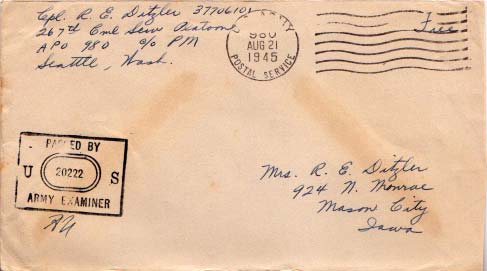 Cpl. R. E. Ditzler 37706101
267th Cml Serv Platoon
APO 980 c/o PM
Seattle, Wash.
980
AUG 21
1945
POSTAL SERVICE
Free
PASSED BY
U 20222 S
ARMY EXAMINER
Mrs. R. E. Ditzler
924 N. Monroe
Mason City
Iowa